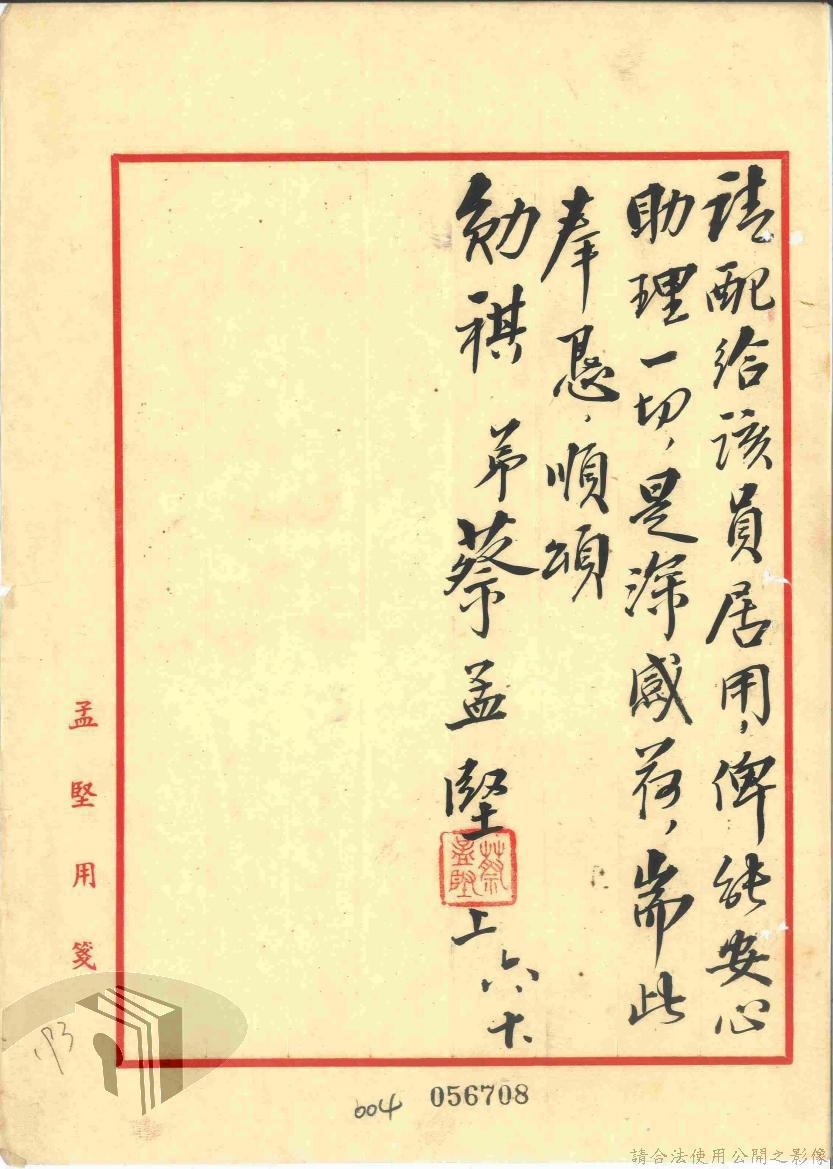 請配給該員居用,俾能安心
助理一切,是深感荷,耑此
奉懇,順頌
勛祺 弟蔡孟堅上 六、十、
蔡孟堅
孟堅用箋
193
004 056708
請合法使用公開之影像